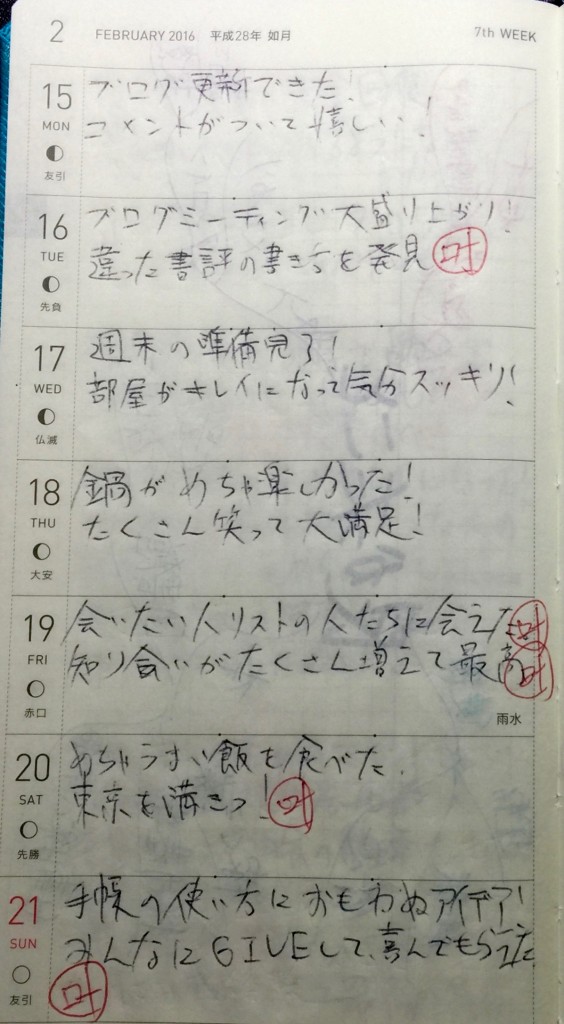 2 FEBRUARY 2016 平成28年 如月 7th WEEK
15 ブログ更新できた!
MON コメントがついて嬉しい!
友引
16 ブログミーティング大盛り上がり!
TUE 違った書評の書き方を発見 叶
先負
17 週末の準備完了!
WED 部屋がキレイになって気分スッキリ!
仏滅
18 鍋がめちゃ楽しかった!
THU たくさん笑って大満足!
大安
19 会いたい人リストの人たちに会えた 叶
FRI 知り合いがたくさん増えて最高 叶
赤口 雨水
20 めちゃうまい飯を食べた.
SAT 東京を満きつ! 叶
先勝
21 手帳の使い方におもわぬアイデア!
SUN みんなにGIVEして、喜んでもらえた
友引 叶